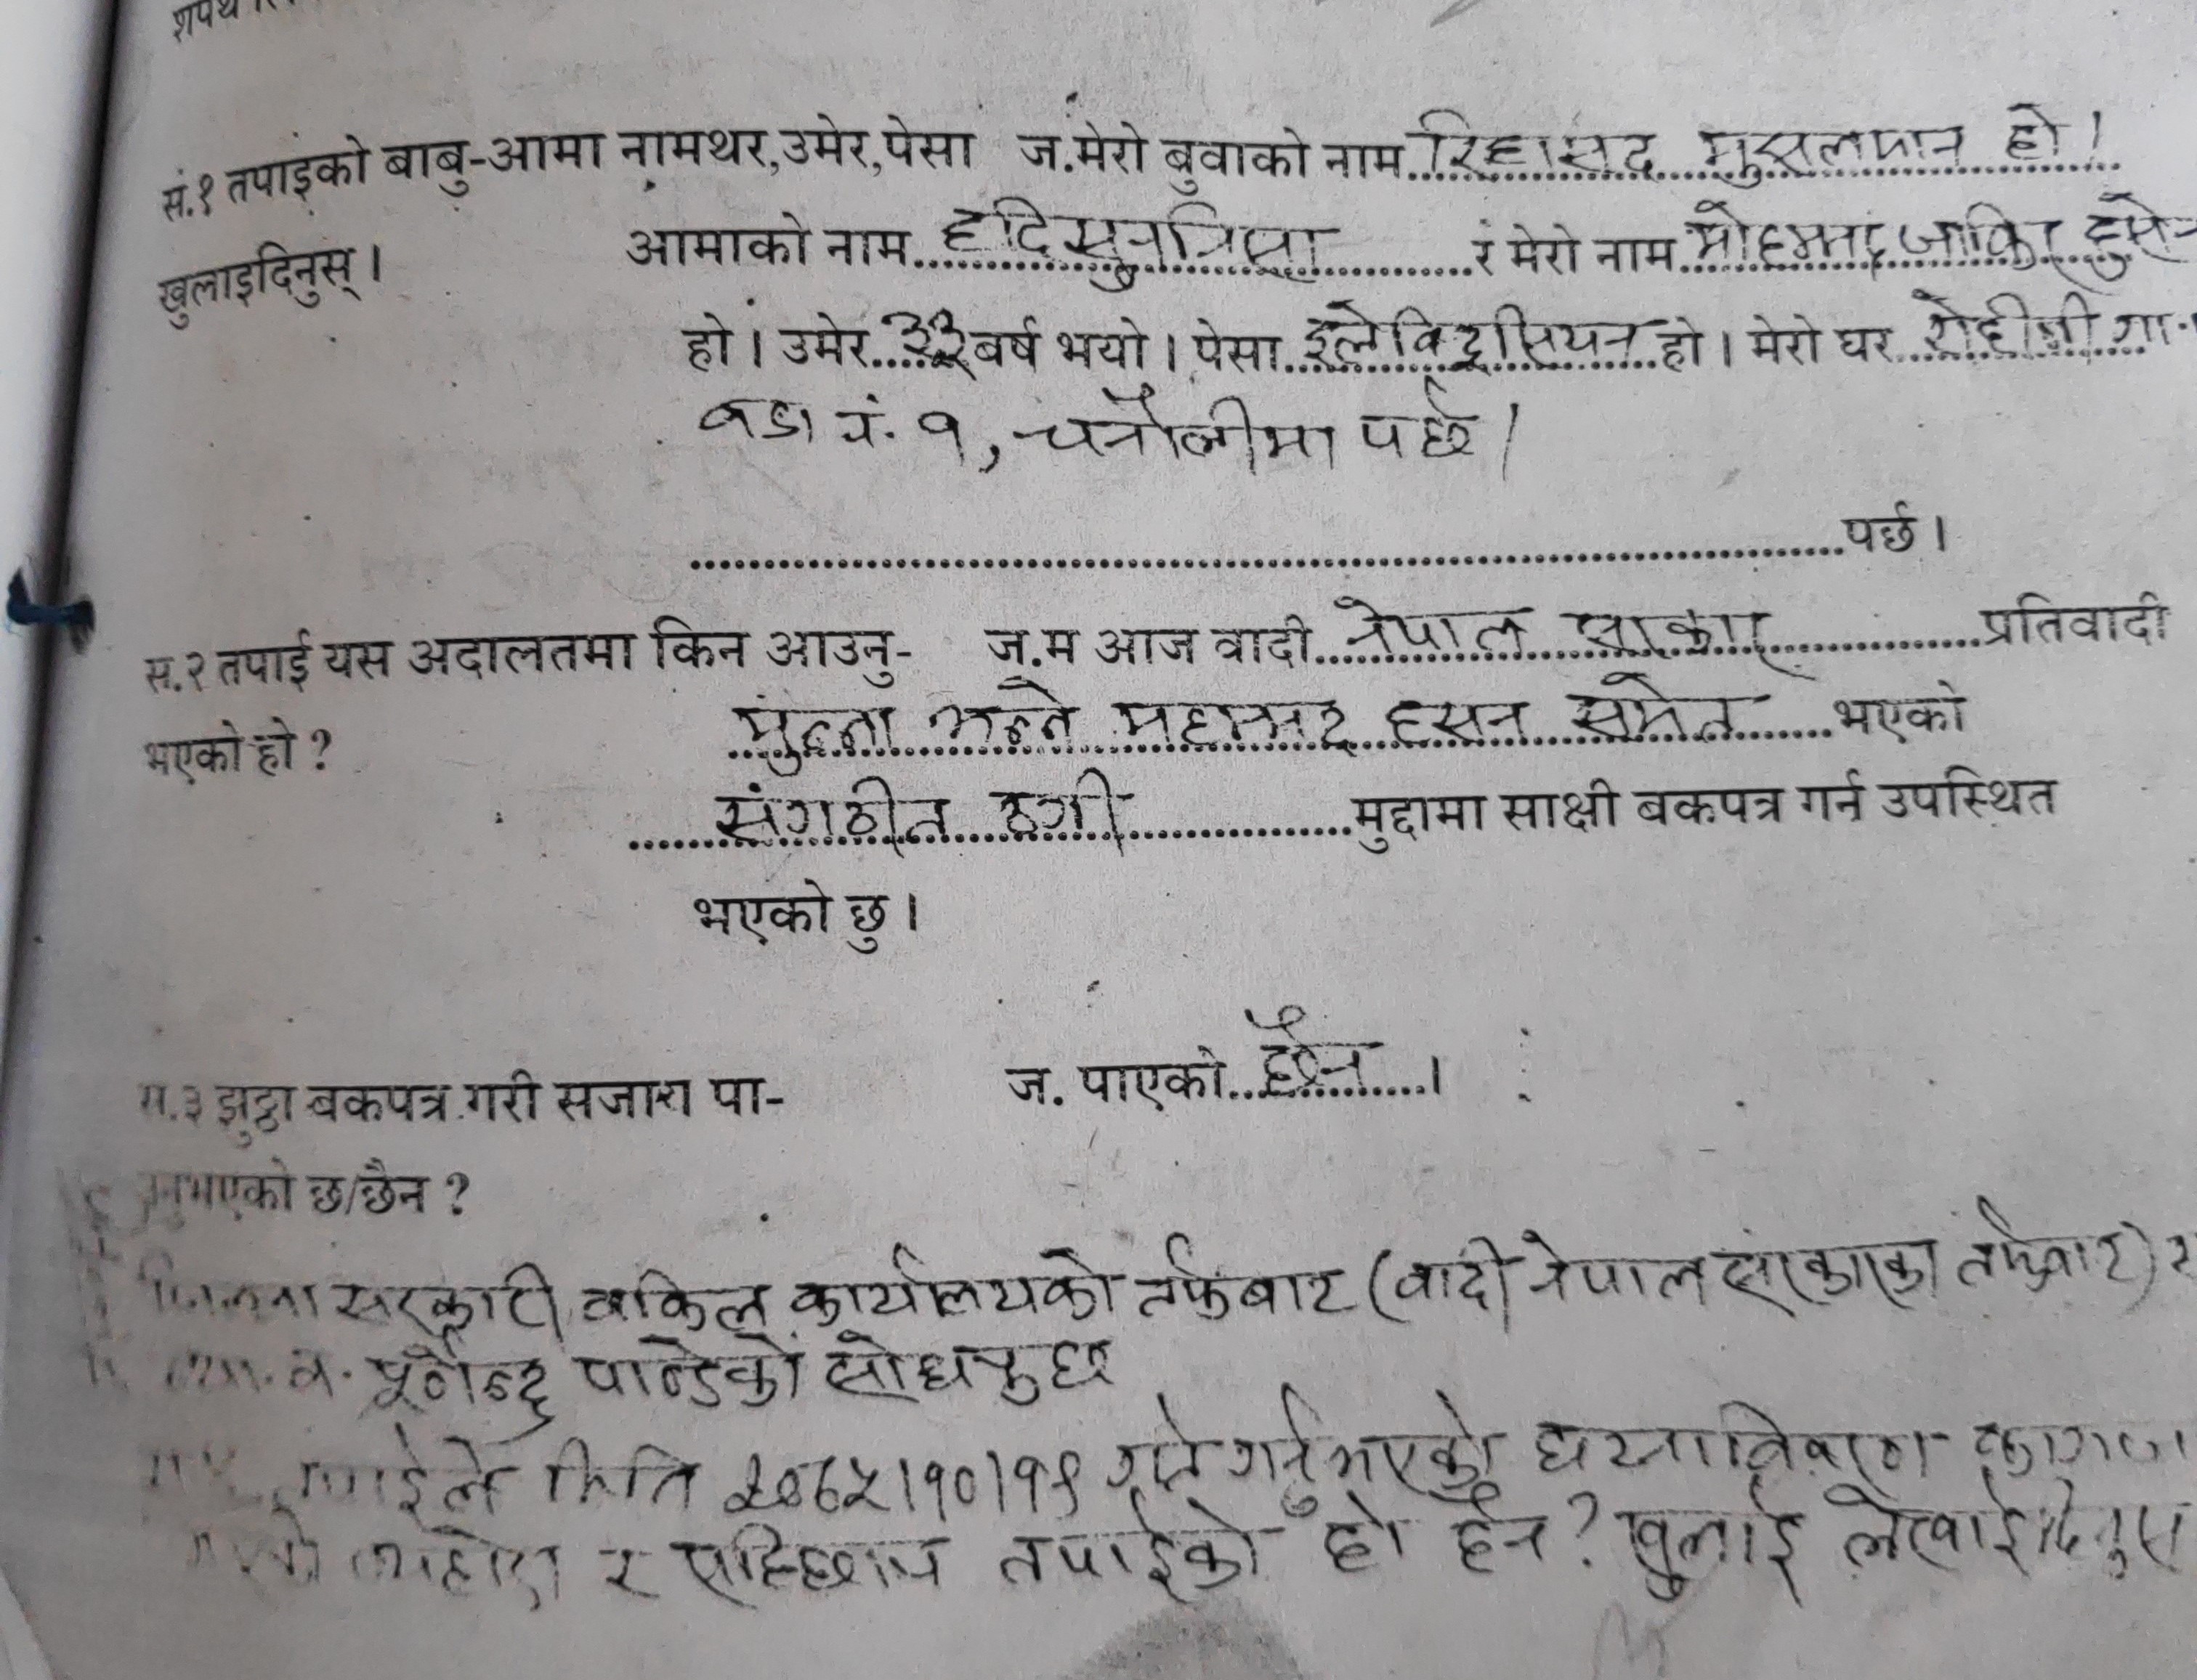 सं.१ तपाइको बाबु-आमा नामथर,उमेर,पेसा ज.मेरो बुवाको नाम..रिहासद मुसलमान हो।
खुलाइदिनुस्। आमाको नाम..हदिसुननिसा..र मेरो नाम..मोहम्मद जाकिर हुसेन
हो। उमेर..३३ बर्ष भयो। पेसा..इलेक्ट्रीसियन..हो। मेरो घर..रोहीणी गा.
वडा नं. १, चनौलीमा पर्छ।
..........पर्छ।
स.२ तपाई यस अदालतमा किन आउनु- ज.म आज वादी..नेपाल सरकार..प्रतिवादी
भएको हो ? मुन्ना भन्ने महम्मद हसन समेत..भएको
..संगठीत ठगी..मुद्दामा साक्षी बकपत्र गर्न उपस्थित
भएको छु।
स.३ झुठ्ठा बकपत्र गरी सजाय पा- ज. पाएको..छैन..।
उनुभएको छ/छैन ?
जिल्ला सरकारी वकिल कार्यालयको तर्फबाट (वादी नेपाल सरकारका तर्फबाट)
पूर्णेन्द्र पाण्डेको सोधनु छ
मिति २०६५।१०।१९ गते गर्नुभएको घटनाविवरण कागज
र सहिछाप तपाईको हो हैन? खुलाई लेखाईदिनुस